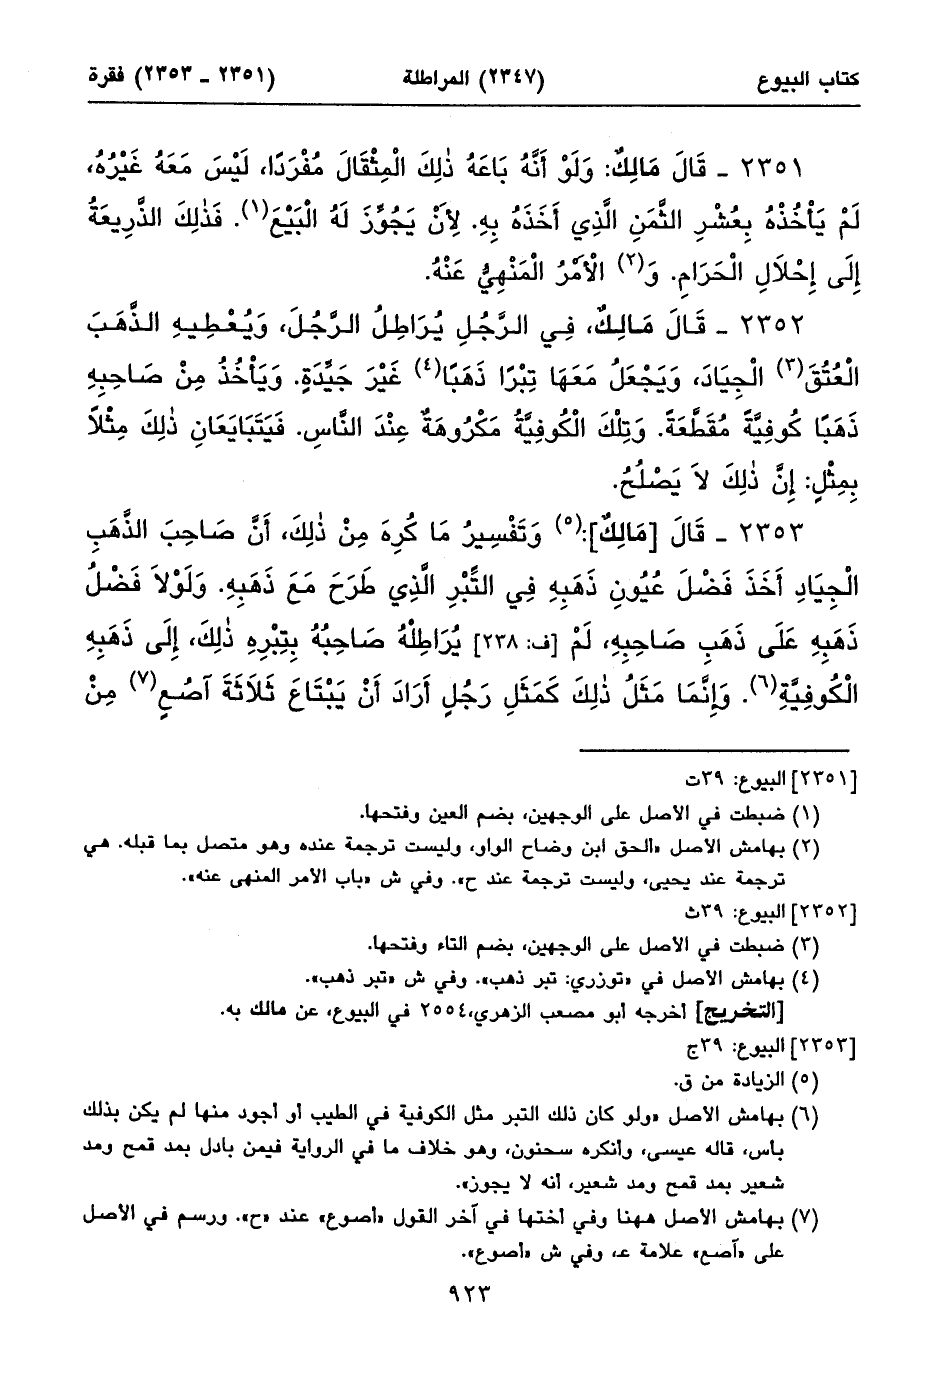 كتاب البيوع (٢٣٤٧) المراطلة (٢٣٥١ - ٢٣٥٣) فقرة
٢٣٥١ - قَالَ مَالِكٌ: وَلَوْ أَنَّهُ بَاعَهُ ذٰلِكَ الْمِثْقَالَ مُفْرَدًا، لَيْسَ مَعَهُ غَيْرُهُ،
لَمْ يَأْخُذْهُ بِعُشْرِ الثَّمَنِ الَّذِي أَخَذَهُ بِهِ. لِأَنْ يَجُوِّزَ لَهُ الْبَيْعَ(١). فَذٰلِكَ الذَّرِيعَةُ
إِلَى إِحْلَالِ الْحَرَامِ. وَ(٢) الْأَمْرُ الْمَنْهِيُّ عَنْهُ.
٢٣٥٢ - قَالَ مَالِكٌ، فِي الرَّجُلِ يُرَاطِلُ الرَّجُلَ، وَيُعْطِيهِ الذَّهَبَ
الْعُتُقَ(٣) الْجِيَادَ، وَيَجْعَلُ مَعَهَا تِبْرًا ذَهَبًا(٤) غَيْرَ جَيِّدَةٍ. وَيَأْخُذُ مِنْ صَاحِبِهِ
ذَهَبًا كُوفِيَّةً مُقَطَّعَةً. وَتِلْكَ الْكُوفِيَّةُ مَكْرُوهَةٌ عِنْدَ النَّاسِ. فَيَتَبَايَعَانِ ذٰلِكَ مِثْلاً
بِمِثْلٍ: إِنَّ ذٰلِكَ لاَ يَصْلُحُ.
٢٣٥٣ - قَالَ [مَالِكٌ]:(٥) وَتَفْسِيرُ مَا كُرِهَ مِنْ ذٰلِكَ، أَنَّ صَاحِبَ الذَّهَبِ
الْجِيَادِ أَخَذَ فَضْلَ عُيُونِ ذَهَبِهِ فِي التِّبْرِ الَّذِي طَرَحَ مَعَ ذَهَبِهِ. وَلَوْلاَ فَضْلُ
ذَهَبِهِ عَلَى ذَهَبِ صَاحِبِهِ، لَمْ [ف: ٢٣٨] يُرَاطِلْهُ صَاحِبُهُ بِتِبْرِهِ ذٰلِكَ، إِلَى ذَهَبِهِ
الْكُوفِيَّةِ(٦). وَإِنَّمَا مَثَلُ ذٰلِكَ كَمَثَلِ رَجُلٍ أَرَادَ أَنْ يَبْتَاعَ ثَلَاثَةَ آصُعٍ(٧) مِنْ
[٢٣٥١] البيوع: ٣٩ت
(١) ضبطت في الأصل على الوجهين، بضم العين وفتحها.
(٢) بهامش الأصل «ألحق ابن وضاح الواو، وليست ترجمة عنده وهو متصل بما قبله. هي
ترجمة عند يحيى، وليست ترجمة عند ح». وفي ش «باب الأمر المنهى عنه».
[٢٣٥٢] البيوع: ٣٩ث
(٣) ضبطت في الأصل على الوجهين، بضم التاء وفتحها.
(٤) بهامش الأصل في «توزري: تبر ذهب». وفي ش «تبر ذهب».
[التخريج] أخرجه أبو مصعب الزهري،٢٥٥٤ في البيوع، عن مالك به.
[٢٣٥٣] البيوع: ٣٩ج
(٥) الزيادة من ق.
(٦) بهامش الأصل «ولو كان ذلك التبر مثل الكوفية في الطيب أو أجود منها لم يكن بذلك
بأس، قاله عيسى، وأنكره سحنون، وهو خلاف ما في الرواية فيمن بادل بمد قمح ومد
شعير بمد قمح ومد شعير، أنه لا يجوز».
(٧) بهامش الأصل ههنا وفي أختها في آخر القول «أصوع» عند «ح». ورسم في الأصل
على «آصع» علامة عـ، وفي ش «أصوع».
٩٢٣